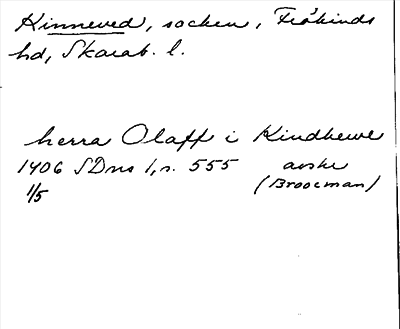 Kinneved, socken, Frökinds
hd, Skarab. l.
herra Olaff i Kindhewe
1406 SDns 1, s. 555 avskr
1/5 (Broocman)